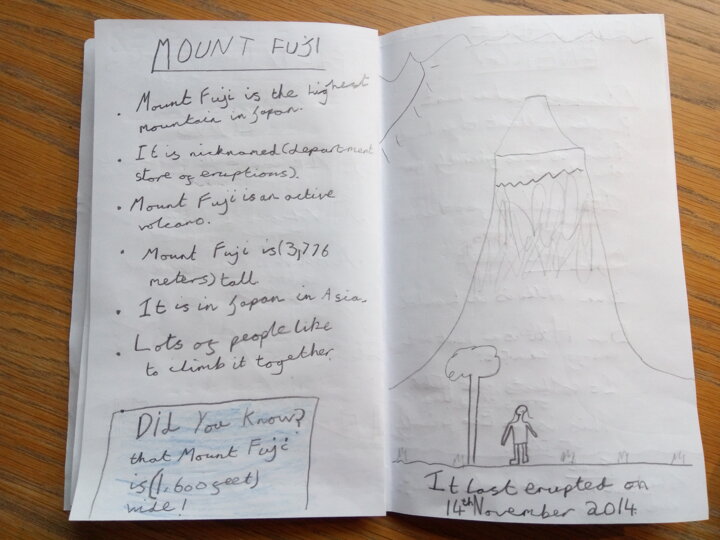 MOUNT FUJI
• Mount Fuji is the highest
mountain in Japan.
• It is nicknamed (department
store of eruptions).
• Mount Fuji is an active
volcano.
• Mount Fuji is (3,776
meters) tall
• It is in Japan in Asia.
• Lots of people like
to climb it together.
• Did You Know?
that Mount Fuji
is (1,600 feet)
wide!
It last erupted on
14th November 2014